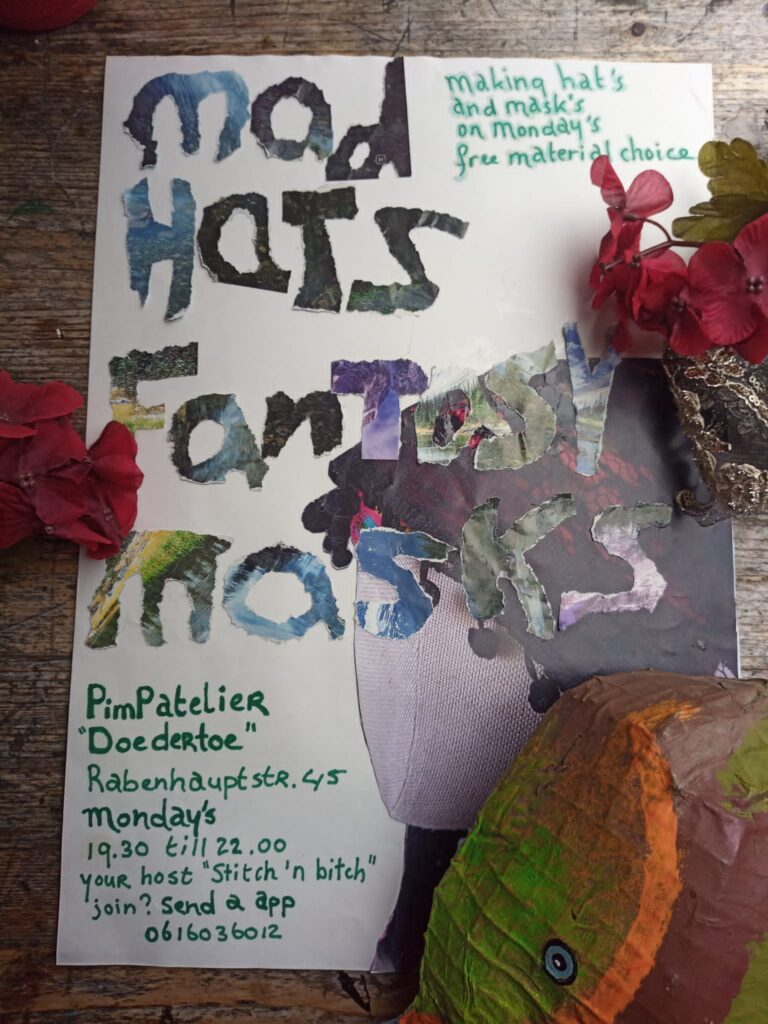 mad
Hats
Fantasy
masks
making hat's
and mask's
on Monday's
free material choice
PimPatelier
"Doedertoe"
Rabenhauptstr. 45
monday's
19.30 till 22.00
your host "Stitch 'n bitch"
join? Send a app
0616036012